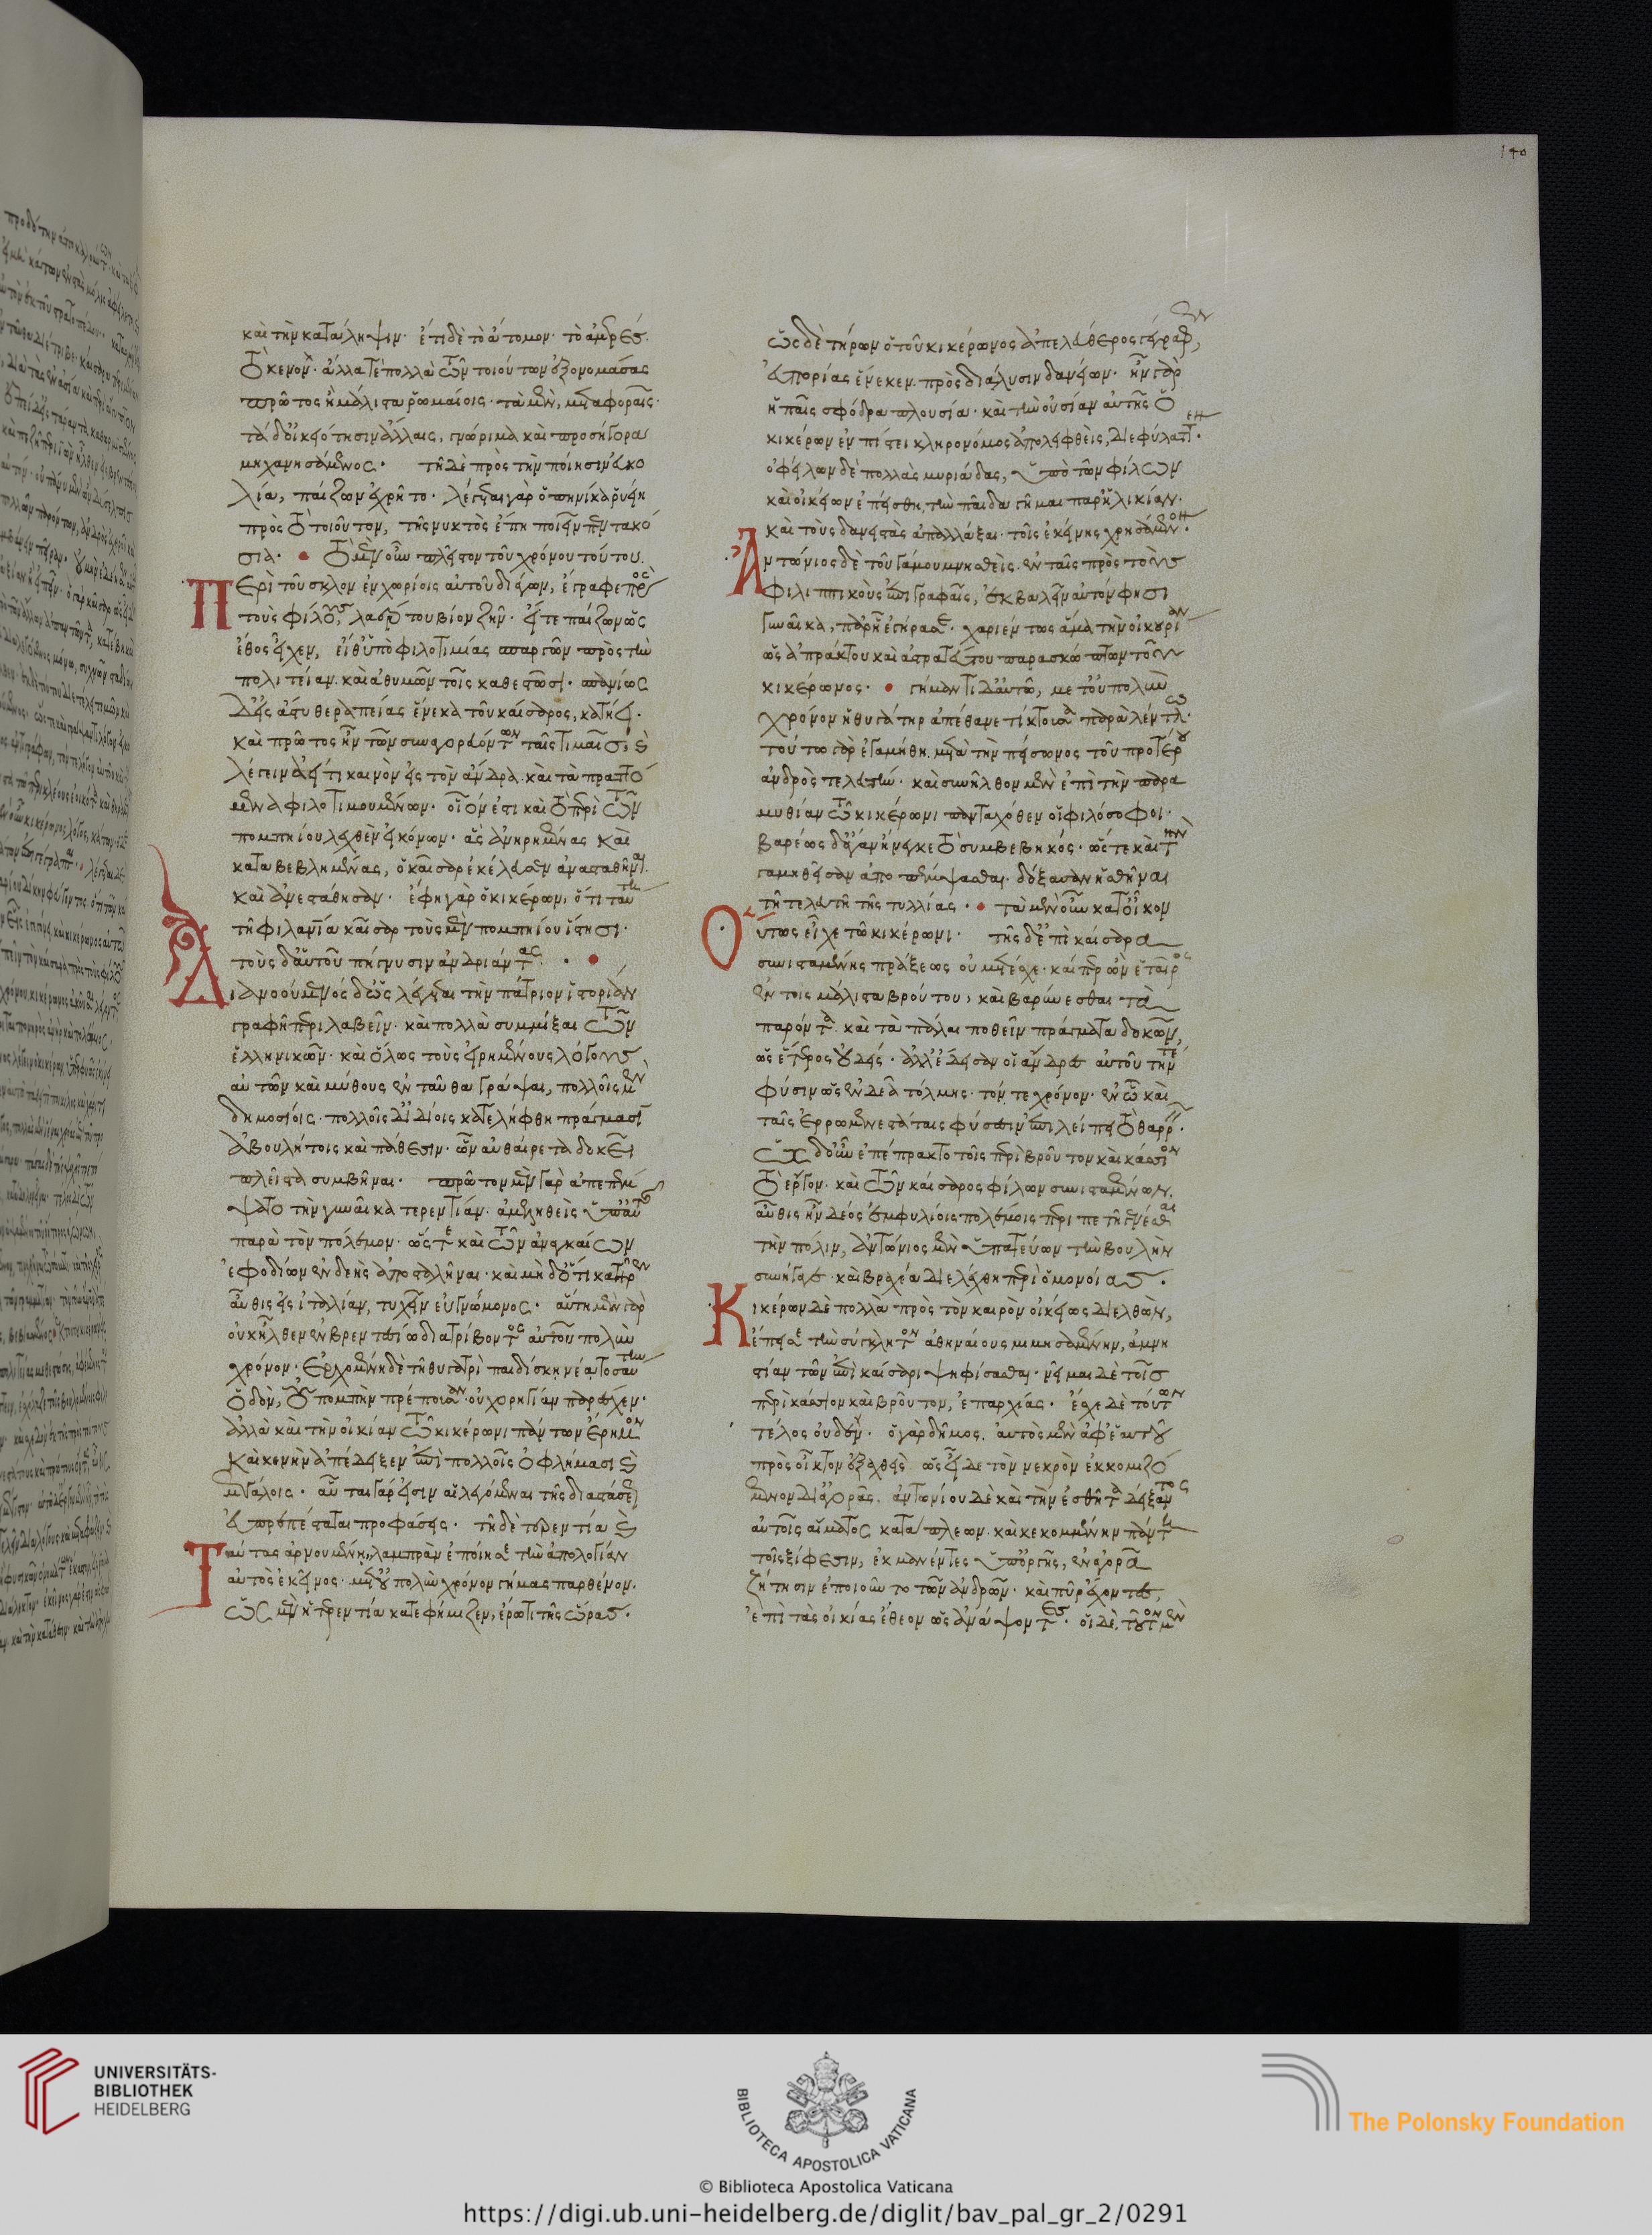 καὶ τὴν κατάληψιν· ἔτι δὲ τὸ ἄτομον· τὸ ἀμερές·
τὸ κενὸν· ἄλλα τὲ πολλὰ τῶν τοιούτων ἐξονομάσας
πρῶτος ἢ μάλιστα ῥωμαίοις· τὰ μὲν, μεταφοραῖς·
τὰ δ' οἰκειότησιν ἄλλαις, γνώριμα καὶ προσήγορα
μηχανησάμενος· τῆ δὲ πρὸς τὴν ποίησιν εὐκο
λία, παίζων ἐχρῆτο· λέγεται γὰρ ὁπηνίκα ῥυείη
πρὸς τὸ τοιοῦτον, τῆς νυκτὸς ἔπη ποιεῖν πεντακό
σια· τὸ μὲν οὖν πλεῖστον τοῦ χρόνου τούτου
Περὶ τοῦσκλον ἐν χωρίοις αὐτοῦ διάγων, ἔγραφε πρὸς
τοὺς φίλους, λαέρτου βίον ζῆν· εἴτε παίζων ὡς
ἔθος εἶχεν, εἴθ' ὑπὸ φιλοτιμίας σπαργῶν πρὸς τὴν
πολιτείαν· καὶ ἀθυμῶν τοῖς καθεστῶσι· σπανίως
δ' εἰς ἄστυ θεραπείας ἕνεκα τοῦ καίσαρος, κατήει·
καὶ πρῶτος ἦν τῶν συναγορευόντων ταῖς τιμαῖς, καὶ
λέγειν ἀεί τι καινὸν εἰς τὸν ἄνδρα· καὶ τὰ πραττό
μενα φιλοτιμουμένων· οἷον ἐστι καὶ τὸ περὶ τῶν
πομπηίου λεχθὲν εἰκόνων· ἃς ἀνηρημένας καὶ
καταβεβλημένας, ὁ καῖσαρ ἐκέλευσεν ἀνασταθῆναι
καὶ ἀνεστάθησαν· ἔφη γὰρ ὁ κικέρων, ὅτι ταύτη
τῆ φιλανθρωπία καῖσαρ τοὺς μὲν πομπηίου ἵστησι·
τοὺς δ' αὐτοῦ πήγνυσιν ἀνδριάντας·
Διανοούμενος δ' ὡς λέγεται τὴν πάτριον ἱστορίαν
γραφῆ περιλαβεῖν· καὶ πολλὰ συμμίξαι τῶν
ἑλληνικῶν· καὶ ὅλως τοὺς εἰρημένους λόγους
αὐτῶν καὶ μύθους ἐνταῦθα γράψαι, πολλοῖς μὲν
δημοσίοις· πολλοῖς δ' ἰδίοις κατελήφθη πράγμασι
ἀβουλήτοις καὶ πάθεσιν· ὧν αὐθαίρετα δοκεῖ
πλεῖστα συμβῆναι· πρῶτον μὲν γὰρ ἀπεπέμ
ψατο τὴν γυναῖκα τερεντίαν· ἀμεληθεὶς ὑπ' αὐτῆς
παρὰ τὸν πόλεμον· ὥστε καὶ τῶν ἀναγκαίων
ἐφοδίων ἐνδεὴς ἀποσταλῆναι· καὶ μὴδ' ὅτι κατῆρεν
αὖθις εἰς ἰταλίαν, τυχεῖν εὐγνώμονος· αὕτη μὲν γὰρ
οὐκ ἦλθεν ἐν βρεντεσίω διατρίβοντος αὐτοῦ πολὺν
χρόνον· ἐρχομένη δὲ τῆ θυγατρὶ παιδίσκη νέα τοσαύτην
ὁδόν, οὐ πομπὴν πρέπουσαν· οὐ χορηγίαν παρέσχεν·
ἀλλὰ καὶ τὴν οἰκίαν τῶ κικέρωνι πάντων ἔρημον
καὶ κενὴν ἀπέδειξεν ἐπὶ πολλοῖς ὀφλήμασι καὶ
μεγάλοις· αὗται γάρ εἰσιν αἱ λεγόμεναι τῆς διαστάσεως
εὐπρεπέσταται προφάσεις· τῆ δὲ τερεντία καὶ
Ταύτας ἀρνουμένη, λαμπρὰν ἐποίησε τὴν ἀπολογίαν
αὐτὸς ἐκεῖνος· μετ' οὐ πολὺν χρόνον γήμας παρθένον·
ὡς μὲν ἡ τερεντία κατεφήμιζεν, ἔρωτι τῆς ὥρας·
140
ὡς δὲ τήρων ὁ τοῦ κικέρωνος ἀπελεύθερος γέγραφεν,
εὐπορίας ἕνεκεν πρὸς διάλυσιν δανείων· ἦν γὰρ
ἡ παῖς σφόδρα πλουσία· καὶ τὴν οὐσίαν αὐτῆς ὁ
κικέρων ἐν πίστει κληρονόμος ἀπολειφθεὶς, διεφύλαττεν·
ὀφείλων δὲ πολλὰς μυριάδας, ὑπὸ τῶν φίλων
καὶ οἰκείων ἐπείσθη τὴν παῖδα γῆμαι παρ' ἡλικίαν·
καὶ τοὺς δανειστὰς ἀπαλλάξαι· τοῖς ἐκείνης χρησάμενον·
Ἀντώνιος δὲ τοῦ γάμου μνησθεὶς· ἐν ταῖς πρὸς τοὺς
φιλιππικοὺς ἀντιγραφαῖς, ἐκβαλεῖν αὐτόν φησι
γυναῖκα, παρ' ἧ ἐγήρασε· χαριέντως ἅμα τὴν οἰκουρίαν
ὡς ἀπράκτου καὶ ἀστρατεύτου παρασκώπτων τοῦ
κικέρωνος· γήμαντι δ' αὐτῶ, μετ' οὐ πολὺν
χρόνον ἡ θυγάτηρ ἀπέθανε τίκτουσα παρὰ λέντλω·
τούτω γὰρ ἐγαμήθη μετὰ τὴν πείσωνος τοῦ προτέρου
ἀνδρὸς τελευτήν· καὶ συνῆλθον μὲν ἐπὶ τὴν παρα
μυθίαν τῶ κικέρωνι πανταχόθεν οἱ φιλόσοφοι·
βαρέως δ' ἄγαν ἤνεγκε τὸ συμβεβηκός· ὥστε καὶ τὴν
γαμηθεῖσαν ἀποπέμψασθαι· δόξασαν ἡσθῆναι
τῆ τελευτῆ τῆς τυλλίας· τὰ μὲν οὖν κατ' οἶκον
Οὕτως εἶχε τῶ κικέρωνι· τῆς δ' ἐπὶ καίσαρα
συνισταμένης πράξεως οὐ μετέσχε· καίπερ ὢν ἑταῖρος
ἐν τοῖς μάλιστα βρούτου, καὶ βαρύνεσθαι τὰ
παρόντα· καὶ τὰ πάλαι ποθεῖν πράγματα δοκῶν,
ὡς ἕτερος οὐδείς· ἀλλ' ἔδεισαν οἱ ἄνδρες αὐτοῦ τήν τε
φύσιν ὡς ἐνδεᾶ τόλμης· τόν τε χρόνον· ἐν ὧ καὶ
ταῖς ἐρρωμενεστάταις φύσεσιν ἐπιλείπει τὸ θαρρεῖν·
ὡς δ' οὖν ἐπέπρακτο τοῖς περὶ βροῦτον καὶ κάσσιον
τὸ ἔργον· καὶ τῶν καίσαρος φίλων συνισταμένων,
αὖθις ἦν δέος ἐμφυλίοις πολέμοις περιπετῆ γενέσθαι
τὴν πόλιν, ἀντώνιος μὲν ὑπατεύων τὴν βουλὴν
συνήγαγε· καὶ βραχέα διελέχθη περὶ ὁμονοίας·
Κικέρων δὲ πολλὰ πρὸς τὸν καιρὸν οἰκείως διελθὼν,
ἔπεισε τὴν σύγκλητον ἀθηναίους μιμησαμένην, ἀμνη
στίαν τῶν ἐπὶ καίσαρι ψηφίσασθαι· νεῖμαι δὲ τοῖς
περὶ κάσσιον καὶ βροῦτον, ἐπαρχίας· ἔσχε δὲ τούτων
τέλος οὐδέν· ὁ γὰρ δῆμος, αὐτὸς μὲν ἀφ' ἑαυτοῦ
πρὸς οἶκτον ἐξαχθεὶς ὡς εἶδε τὸν νεκρὸν ἐκκομιζό
μενον δι' ἀγορᾶς, ἀντωνίου δὲ καὶ τὴν ἐσθῆτα δείξαντος
αὐτοῖς αἵματος κατάπλεων· καὶ κεκομμένην πάντη
τοῖς ξίφεσιν, ἐκμανέντες ὑπ' ὀργῆς, ἐν ἀγορᾶ
ζήτησιν ἐποιοῦντο τῶν ἀνδρῶν· καὶ πῦρ ἔχοντες,
ἐπὶ τὰς οἰκίας ἔθεον ὡς ἀνάψοντες· οἱ δὲ, τοῦτον μὲν
UNIVERSITÄTS-
BIBLIOTHEK
HEIDELBERG
BIBLIOTECA APOSTOLICA VATICANA
The Polonsky Foundation
© Biblioteca Apostolica Vaticana
https://digi.ub.uni-heidelberg.de/diglit/bav_pal_gr_2/0291